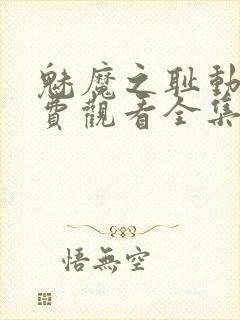 魅魔之耻動
費觀看全集
悟無空